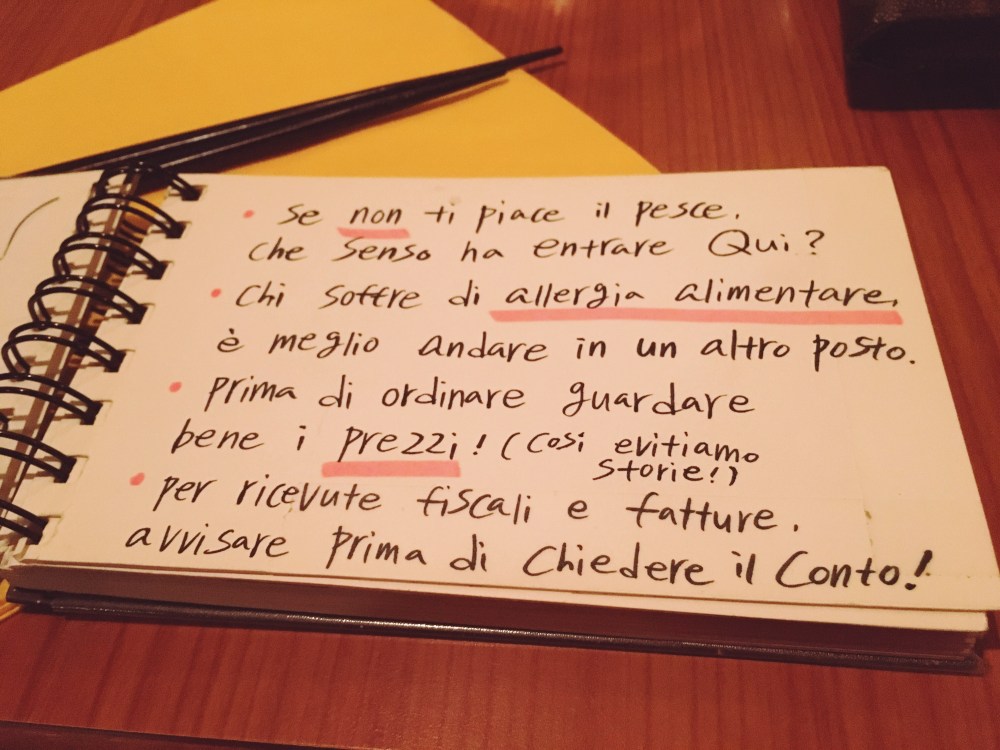 • Se non ti piace il pesce,
che senso ha entrare Qui?
• Chi soffre di allergia alimentare,
è meglio andare in un altro posto.
• prima di ordinare guardare
bene i prezzi! (così evitiamo
storie!)
• per ricevute fiscali e fatture,
avvisare prima di Chiedere il Conto!